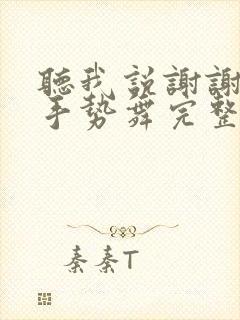 聽我説謝謝
手勢舞完整
秦秦T